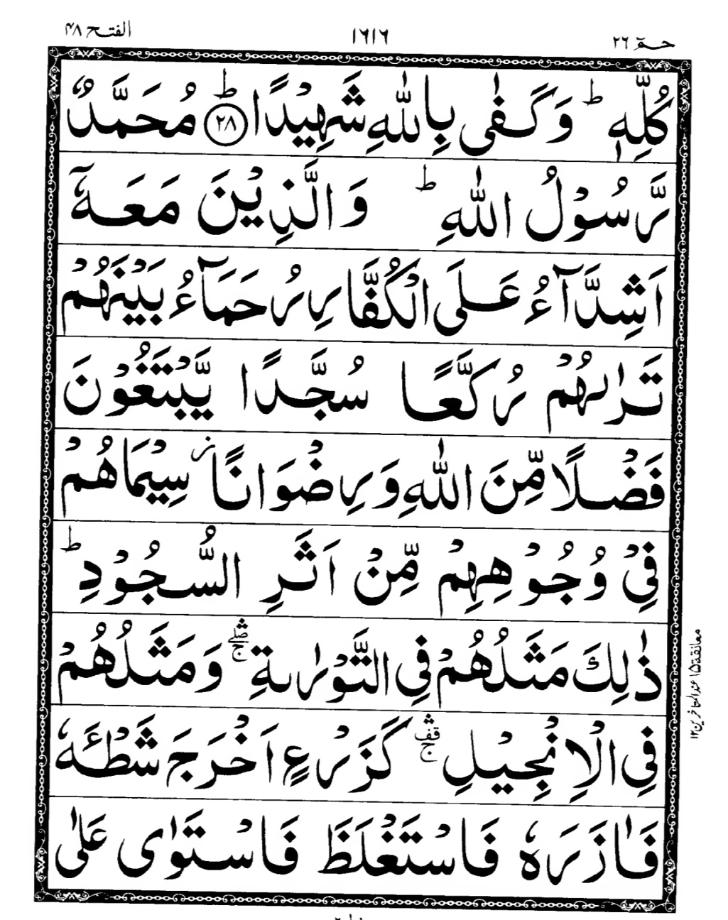 الفتح ۴۸ ۱۶۱۶ حٰمٓ ۲۶
كُلِّهٖ ؕ وَكَفٰى بِاللّٰهِ شَهِيْدًا ؕ ﴿۲۸﴾ مُحَمَّدٌ
رَّسُوْلُ اللّٰهِ ؕ وَالَّذِيْنَ مَعَهٗۤ
اَشِدَّآءُ عَلَى الْكُفَّارِ رُحَمَآءُ بَيْنَهُمْ
تَرٰىهُمْ رُكَّعًا سُجَّدًا يَّبْتَغُوْنَ
فَضْلًا مِّنَ اللّٰهِ وَرِضْوَانًا ز سِيْمَاهُمْ
فِيْ وُجُوْهِهِمْ مِّنْ اَثَرِ السُّجُوْدِ ؕ
ذٰلِكَ مَثَلُهُمْ فِي التَّوْرٰىةِ ۛۖۚ وَمَثَلُهُمْ
فِي الْاِنْجِيْلِ ۛۚ قف كَزَرْعٍ اَخْرَجَ شَطْـَٔهٗ
فَاٰزَرَهٗ فَاسْتَغْلَظَ فَاسْتَوٰى عَلٰى
معانقة ۱۵ عند المتاخرين ۱۲